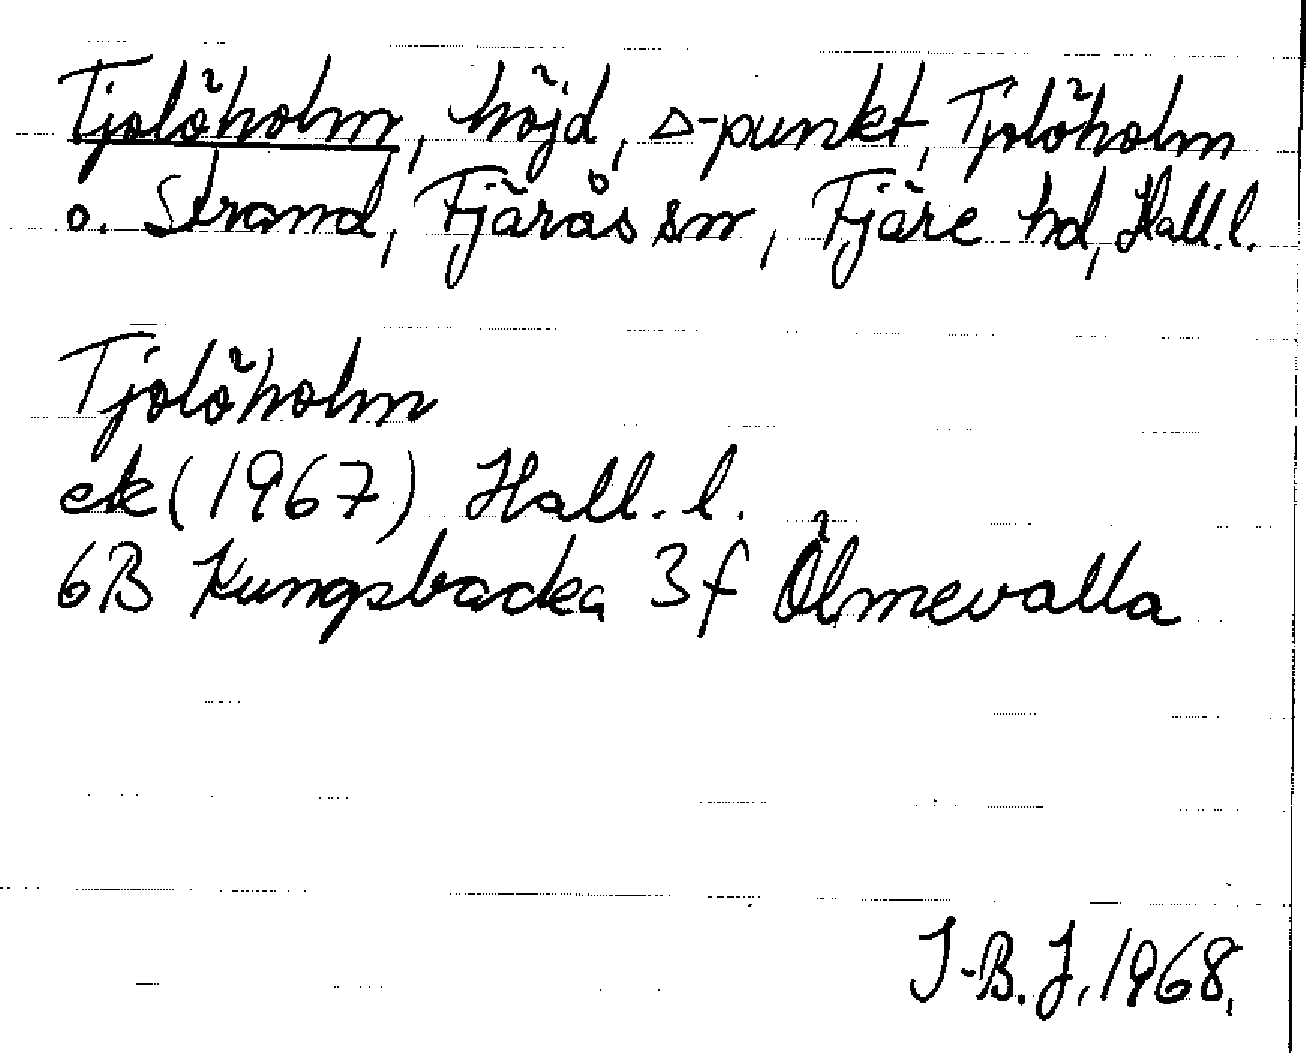 Tjolöholm, höjd, △-punkt, Tjolöholm
o. Strand, Fjärås sn, Fjäre hd, Hall.l.
Tjolöholm
ek (1967) Hall. l.
6B Kungsbacka 3f Ölmevalla
I-B. J, 1968.